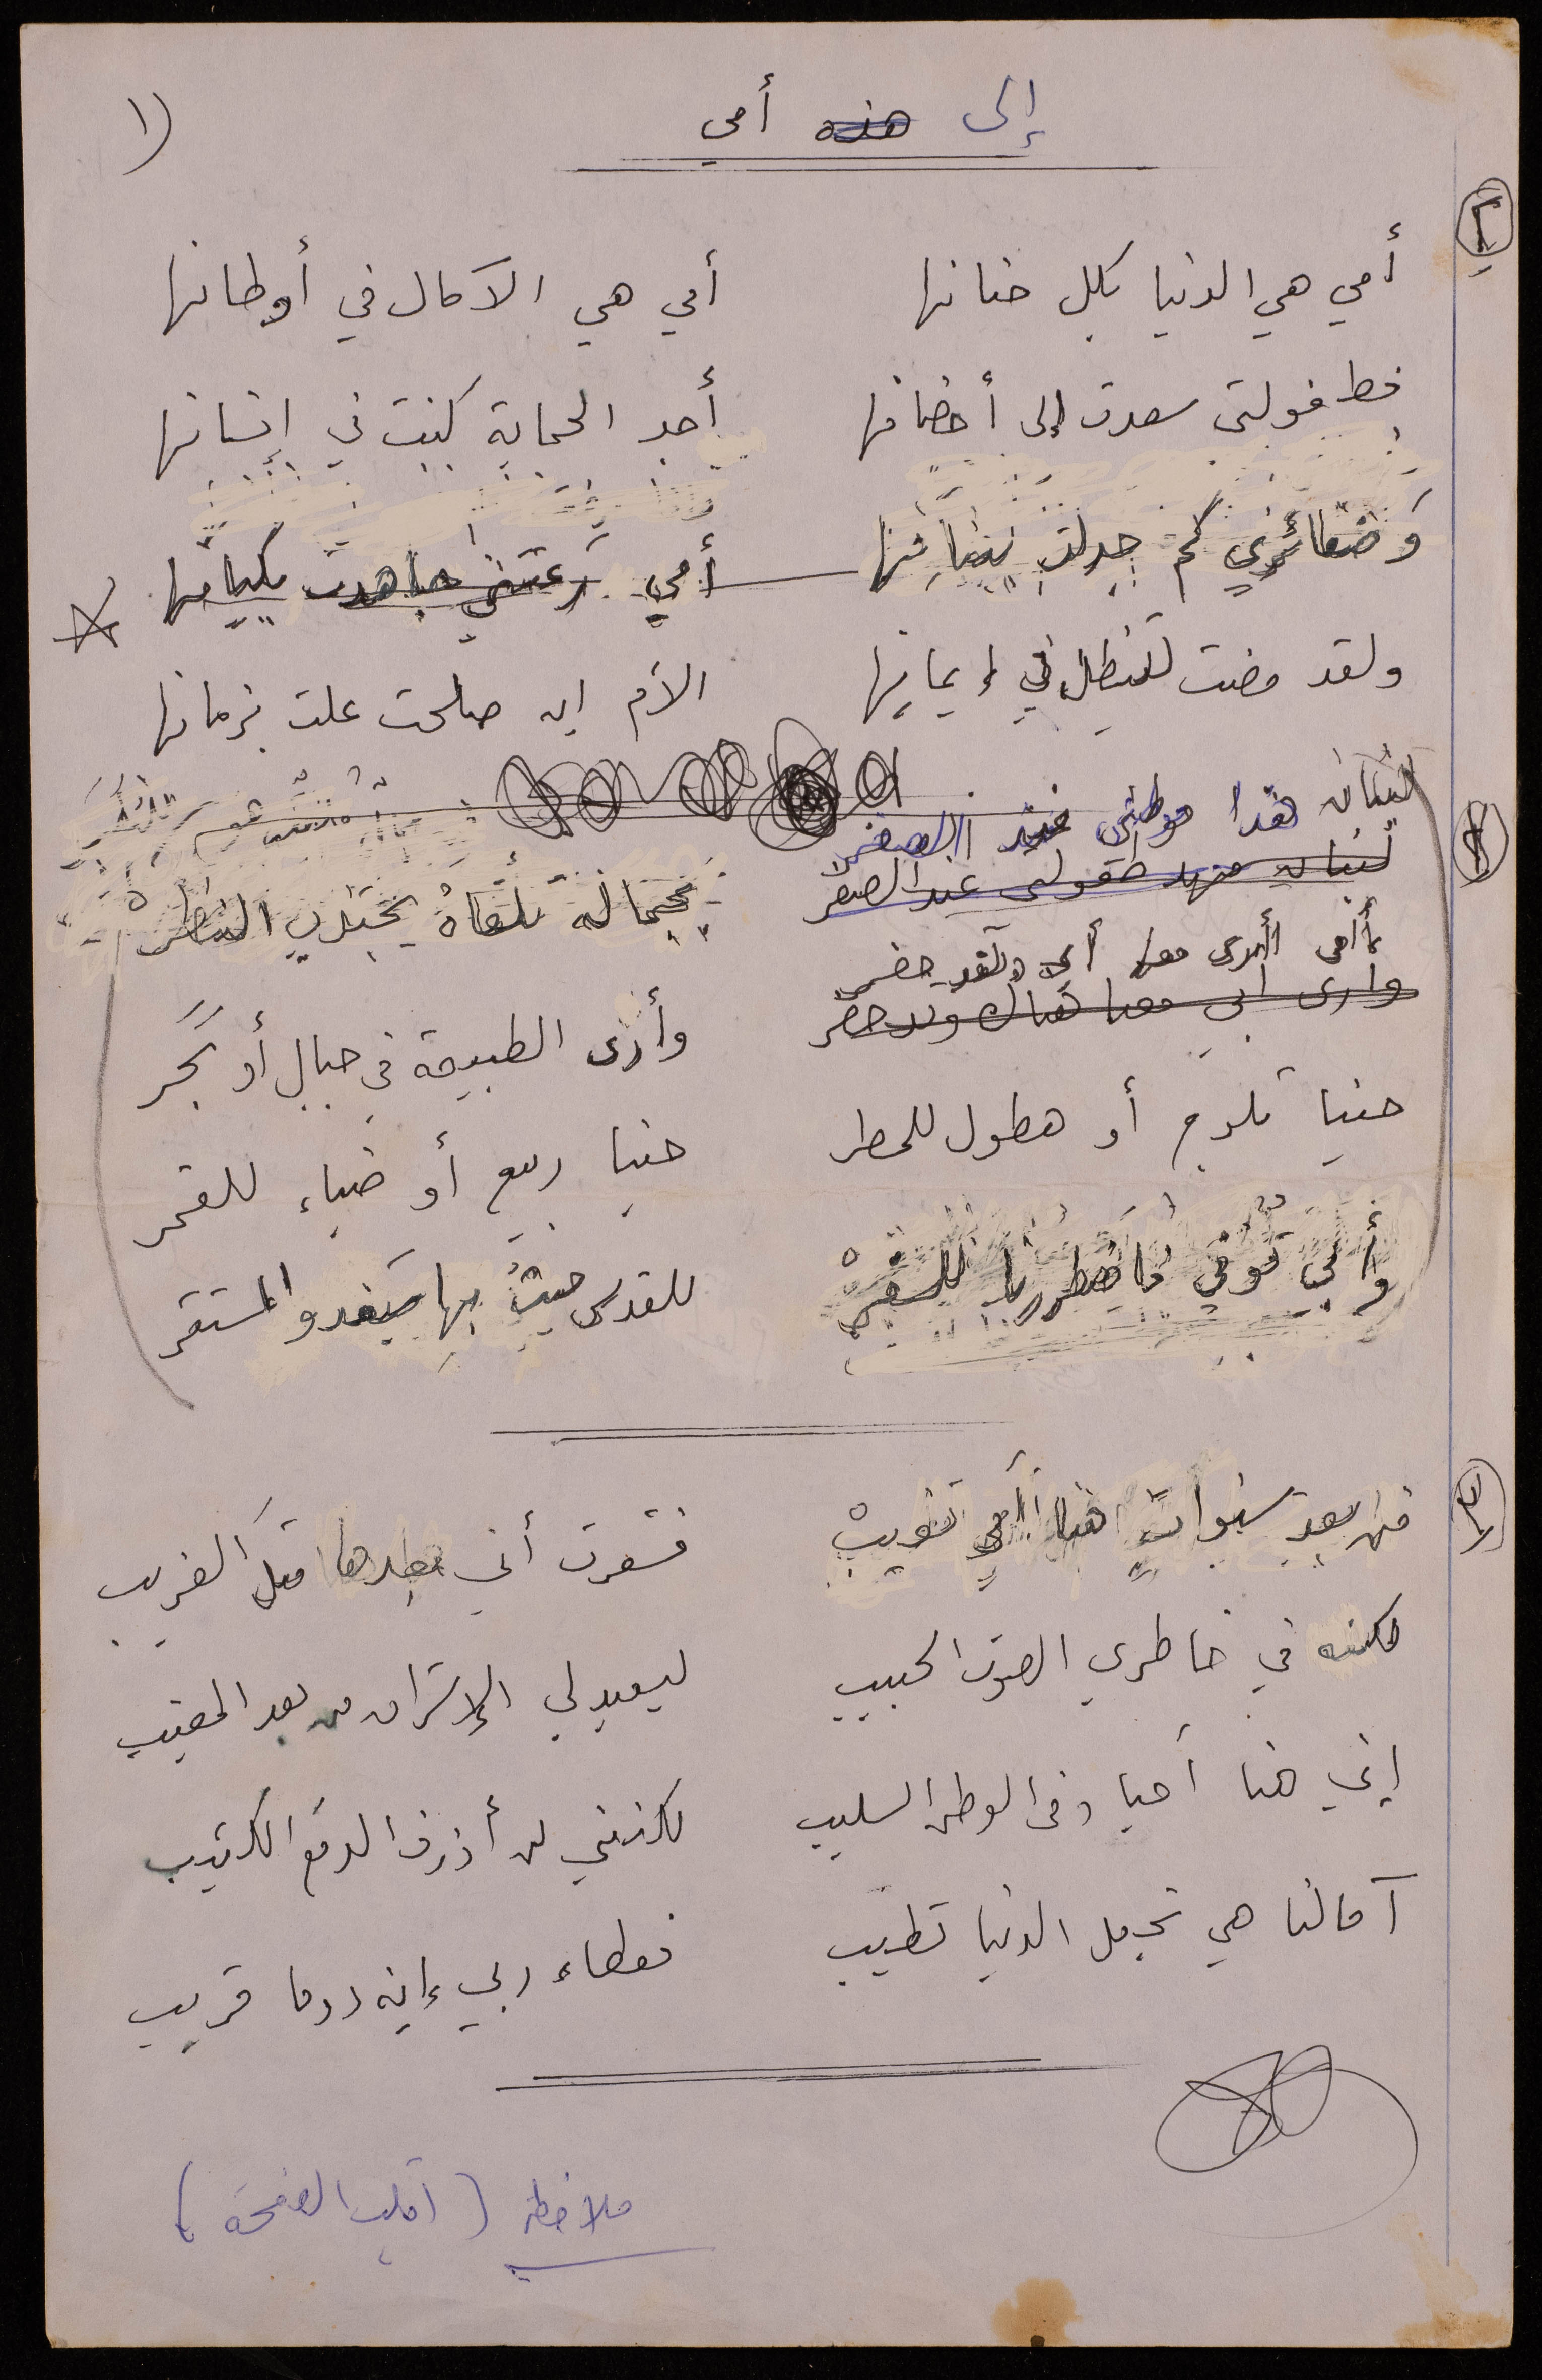 (١
إلى هذه أمي
٢
أمي هي الدنيا بكل حنانها أمي هي الآمال في أوطانها
فطفولتي سعدت إلى أحضانها أجد الحماية كنت في إنسانها
وضفائري كم جدلت ببنانها أمي رعتني جاهدت بكيانها
ولقد مضت لتظل في إيمانها الأم إن صلحت علت بزمانها
١
لبنان هذا موطني منذ الصغر
لبنان مهد طفولتي عند الصغر بجماله تلقاه يجتذب النظر
أمي أرى معها أبي ولقد حضر
وأرى أبي معنا هناك وقد حضر وأرى الطبيعة في جبال أو بحر
حينا ثلوج أو هطول للمطر حينا ربيع أو ضياء للقمر
وأبي توفي فاضطررنا للسفر للقدس حيث بها سيغدو المستقر
٣
من بعد سنوات هنا أمي تغيب فشعرت أني بعدها مثل الغريب
لكنه في خاطري الصوت الحبيب ليعيد لي الإشراق من بعد المغيب
إني هنا أحيا وفي الوطن السليب لكنني لن أذرف الدمع الكئيب
آمالنا هي تجعل الدنيا تطيب فعطاء ربي إنه دوما قريب
ملاحظة (اقلب الصفحة)